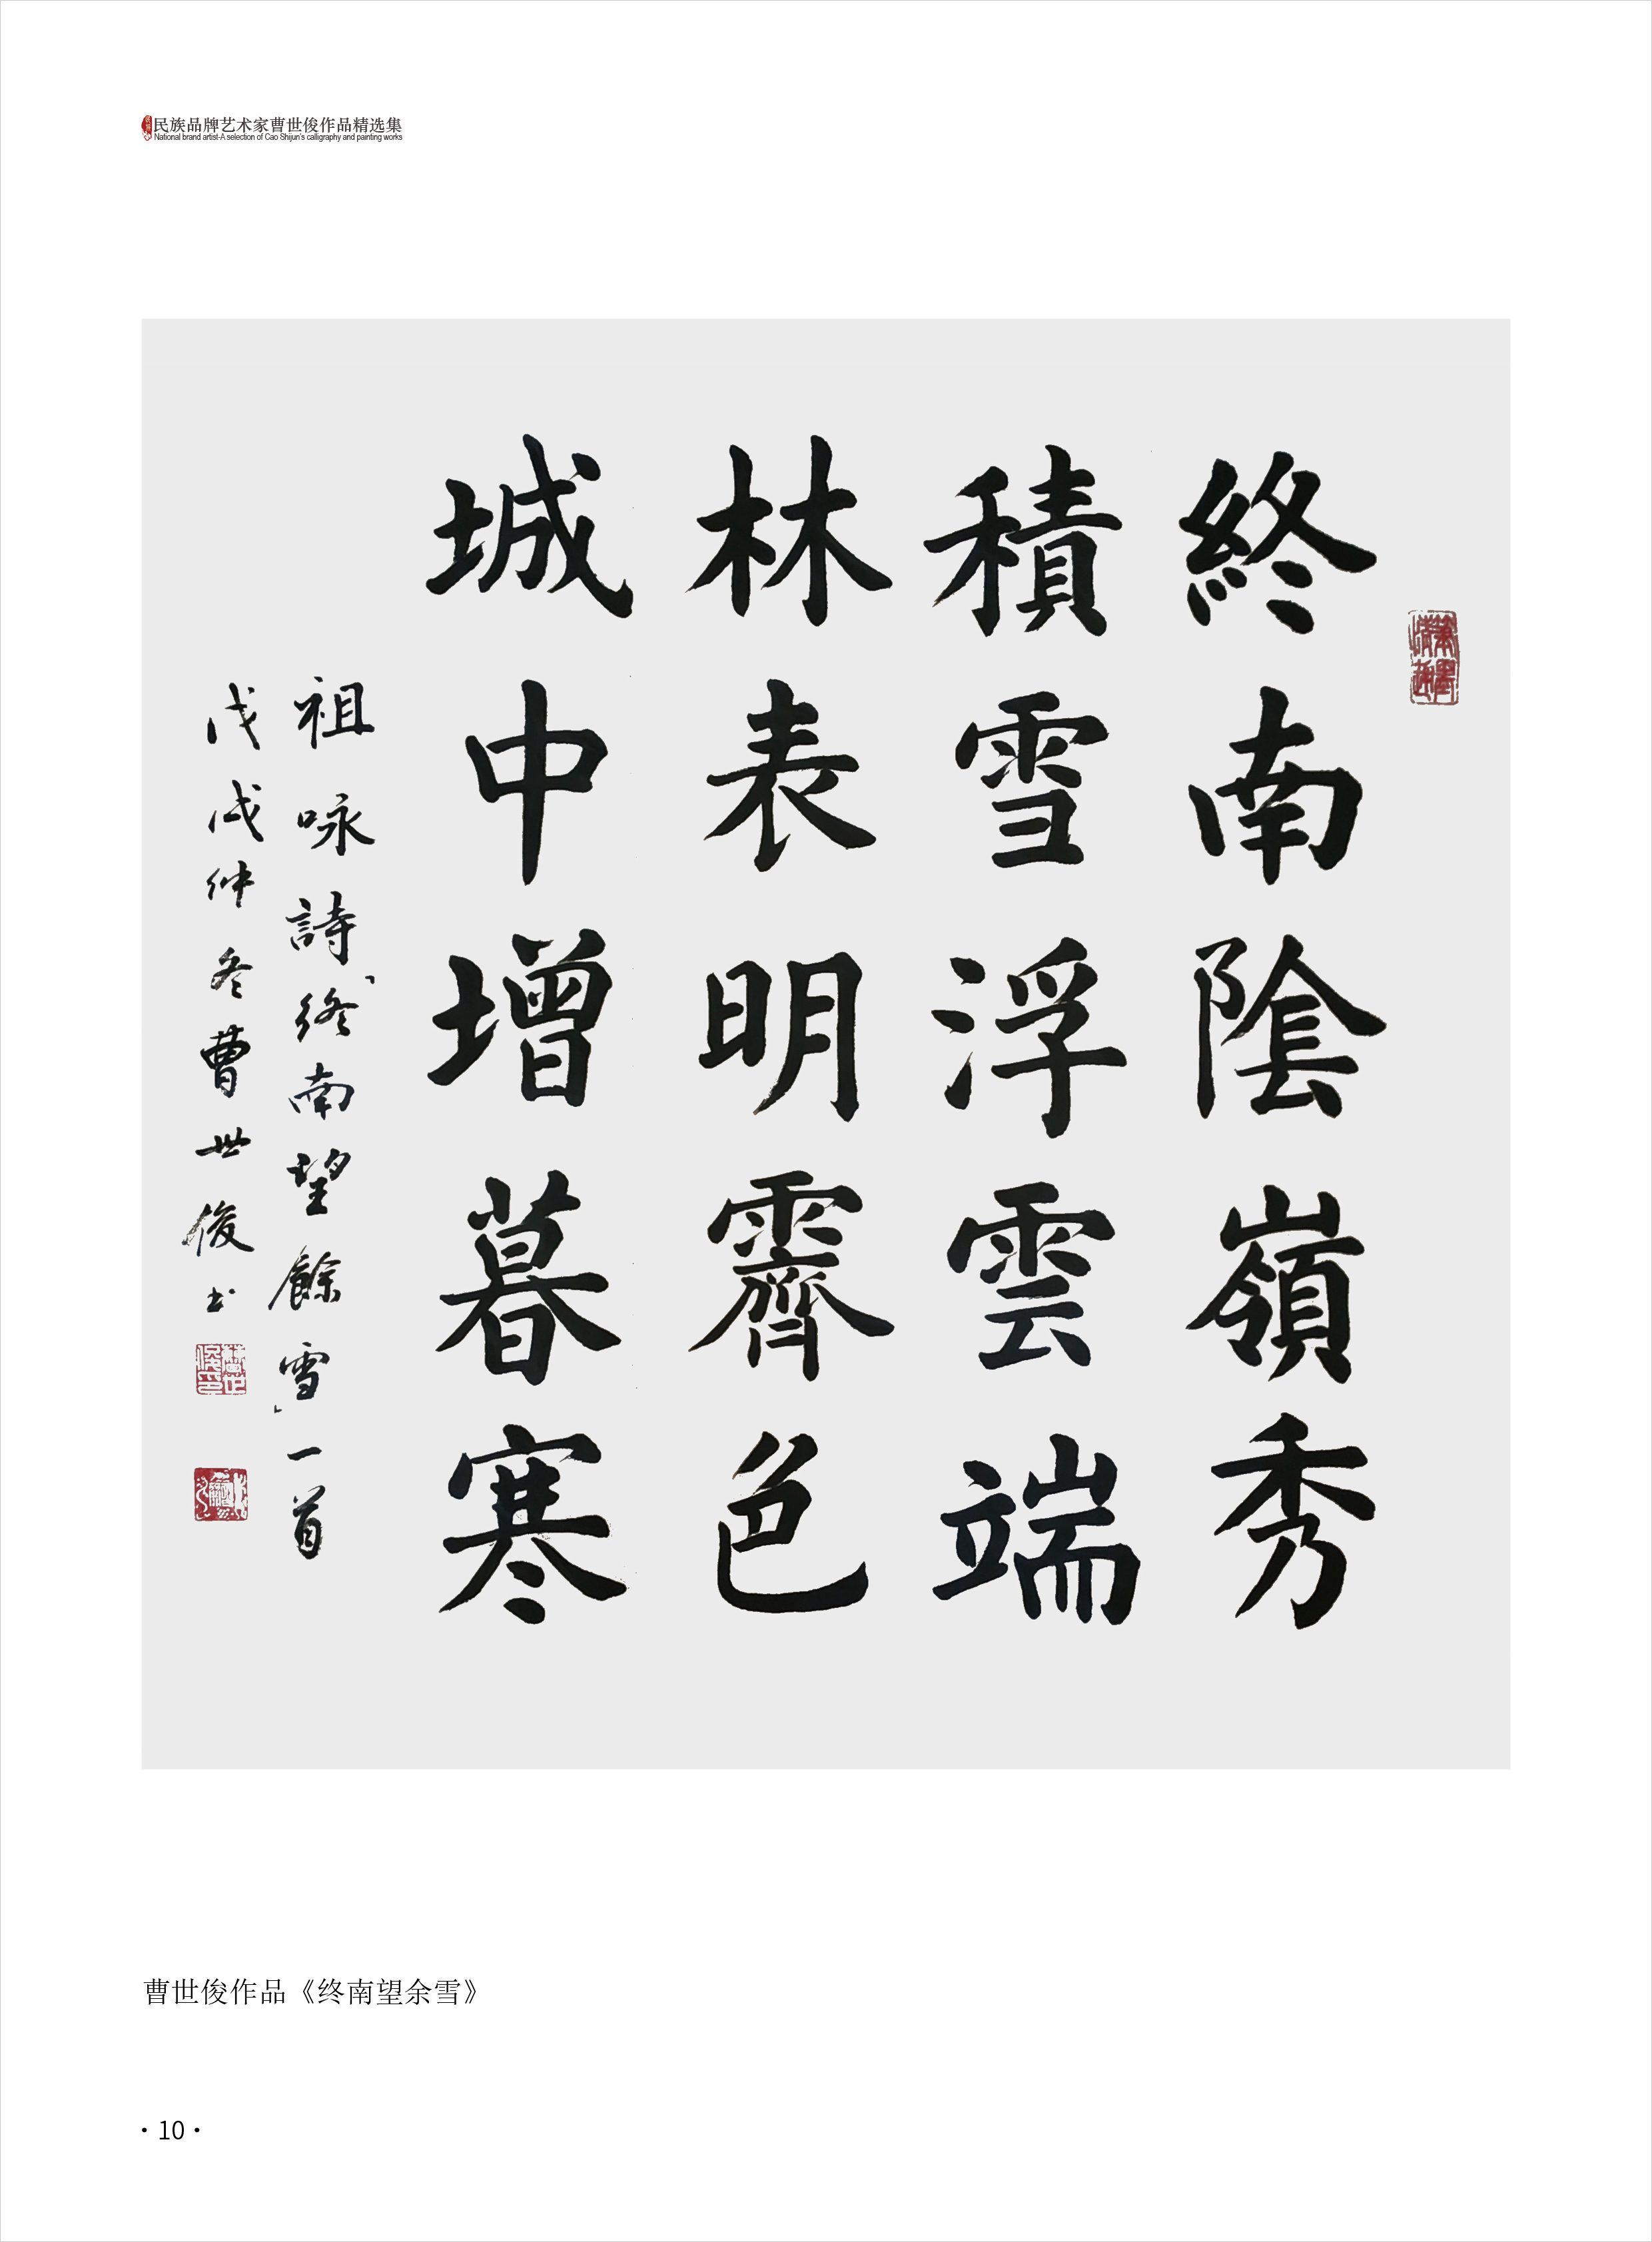 民族品牌艺术家曹世俊作品精选集
National brand artist-A selection of Cao Shijun's calligraphy and painting works
終南陰嶺秀
積雪浮雲端
林表明霽色
城中增暮寒
祖咏詩「終南望餘雪」一首
戊戌仲冬曹世俊书
曹世俊作品《终南望余雪》
·10·